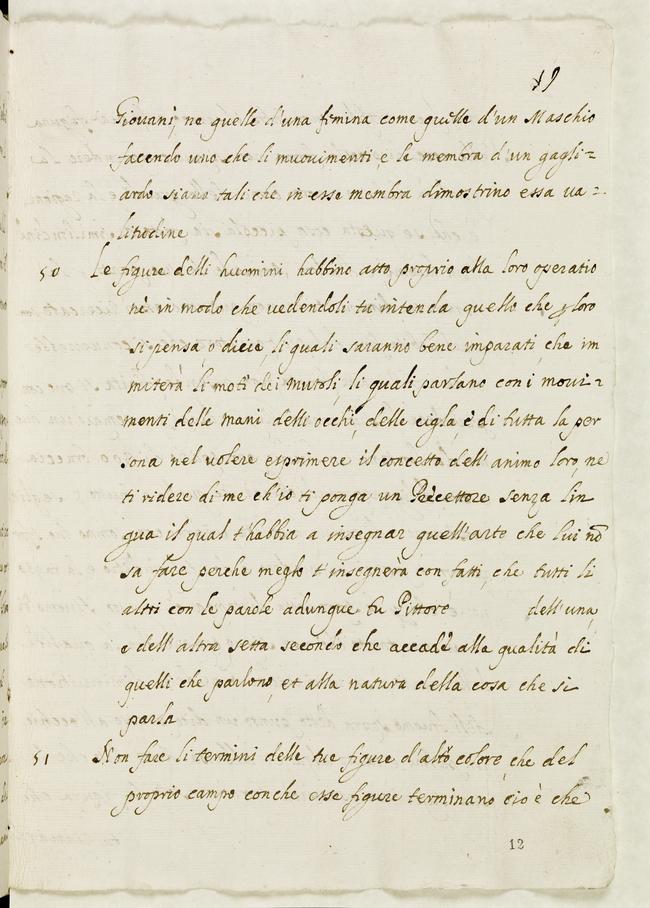 19
Giovani, ne quelle d'una femina come quelle d'un Maschio
facendo uno che li muovimenti, e le membra d'un gagli=
ardo siano tali che in esse membra dimostrino essa va=
litudine
50 Le figure delli huomini habbino atto proprio alla loro operatio
nè in modo che vedendoli tu intenda quello che p loro
si pensa, o dicie, li quali saranno bene imparati, che im
miterà li moti dei mutoli, li quali parlano con i movi=
menti delle mani delli occhi, delle cigla, è di tutta la per
sona nel volere esprimere il concetto dell' animo loro, ne
ti ridere di me ch'io ti ponga un Precettore senza lin
gua il qual t'habbia a insegnar quell'arte che lui nõ
sa fare perche meglo t'insegnerà con fatti, che tutti li
altri con le parole adunque tu Pittore dell'una,
e dell'altra setta secondo che accade alla qualità di
quelli che parlono, et alla natura della cosa che si
parla
51 Non fare li termini delle tue figure d'altro colore, che del
proprio campo con che esse figure terminano cio è che
12